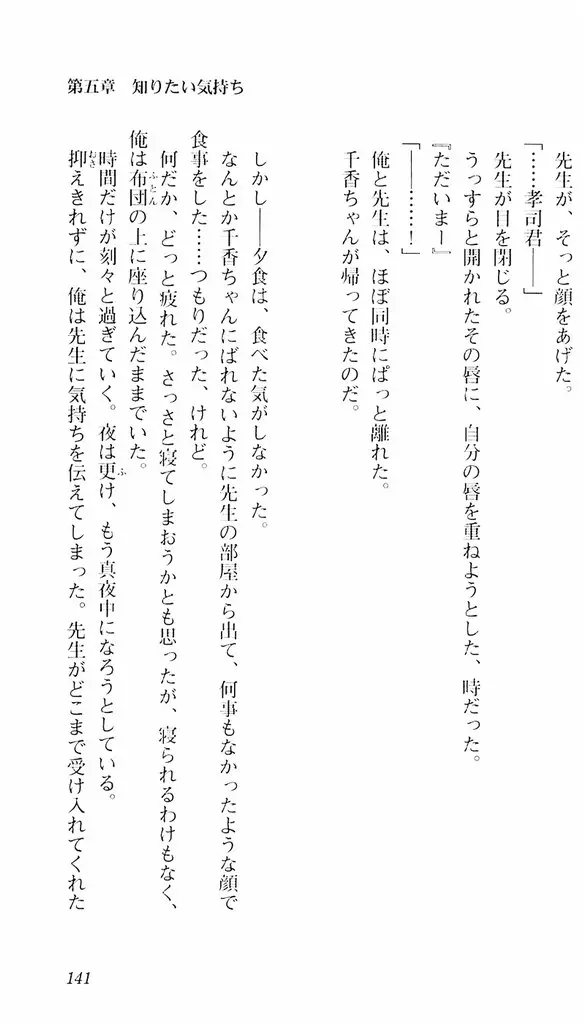 第五章　知りたい気持ち
先生が、そっと顔をあげた。
「……孝司君――」
先生が目を閉じる。
うっすらと開かれたその唇に、自分の唇を重ねようとした、時だった。
『ただいまー』
「――……！」
俺と先生は、ほぼ同時にぱっと離れた。
千香ちゃんが帰ってきたのだ。
しかし――夕食は、食べた気がしなかった。
なんとか千香ちゃんにばれないように先生の部屋から出て、何事もなかったような顔で
食事をした……つもりだった、けれど。
何だか、どっと疲れた。さっさと寝てしまおうかとも思ったが、寝られるわけもなく、
俺は布団の上に座り込んだままでいた。
時間だけが刻々と過ぎていく。夜は更け、もう真夜中になろうとしている。
抑えきれずに、俺は先生に気持ちを伝えてしまった。先生がどこまで受け入れてくれた
141